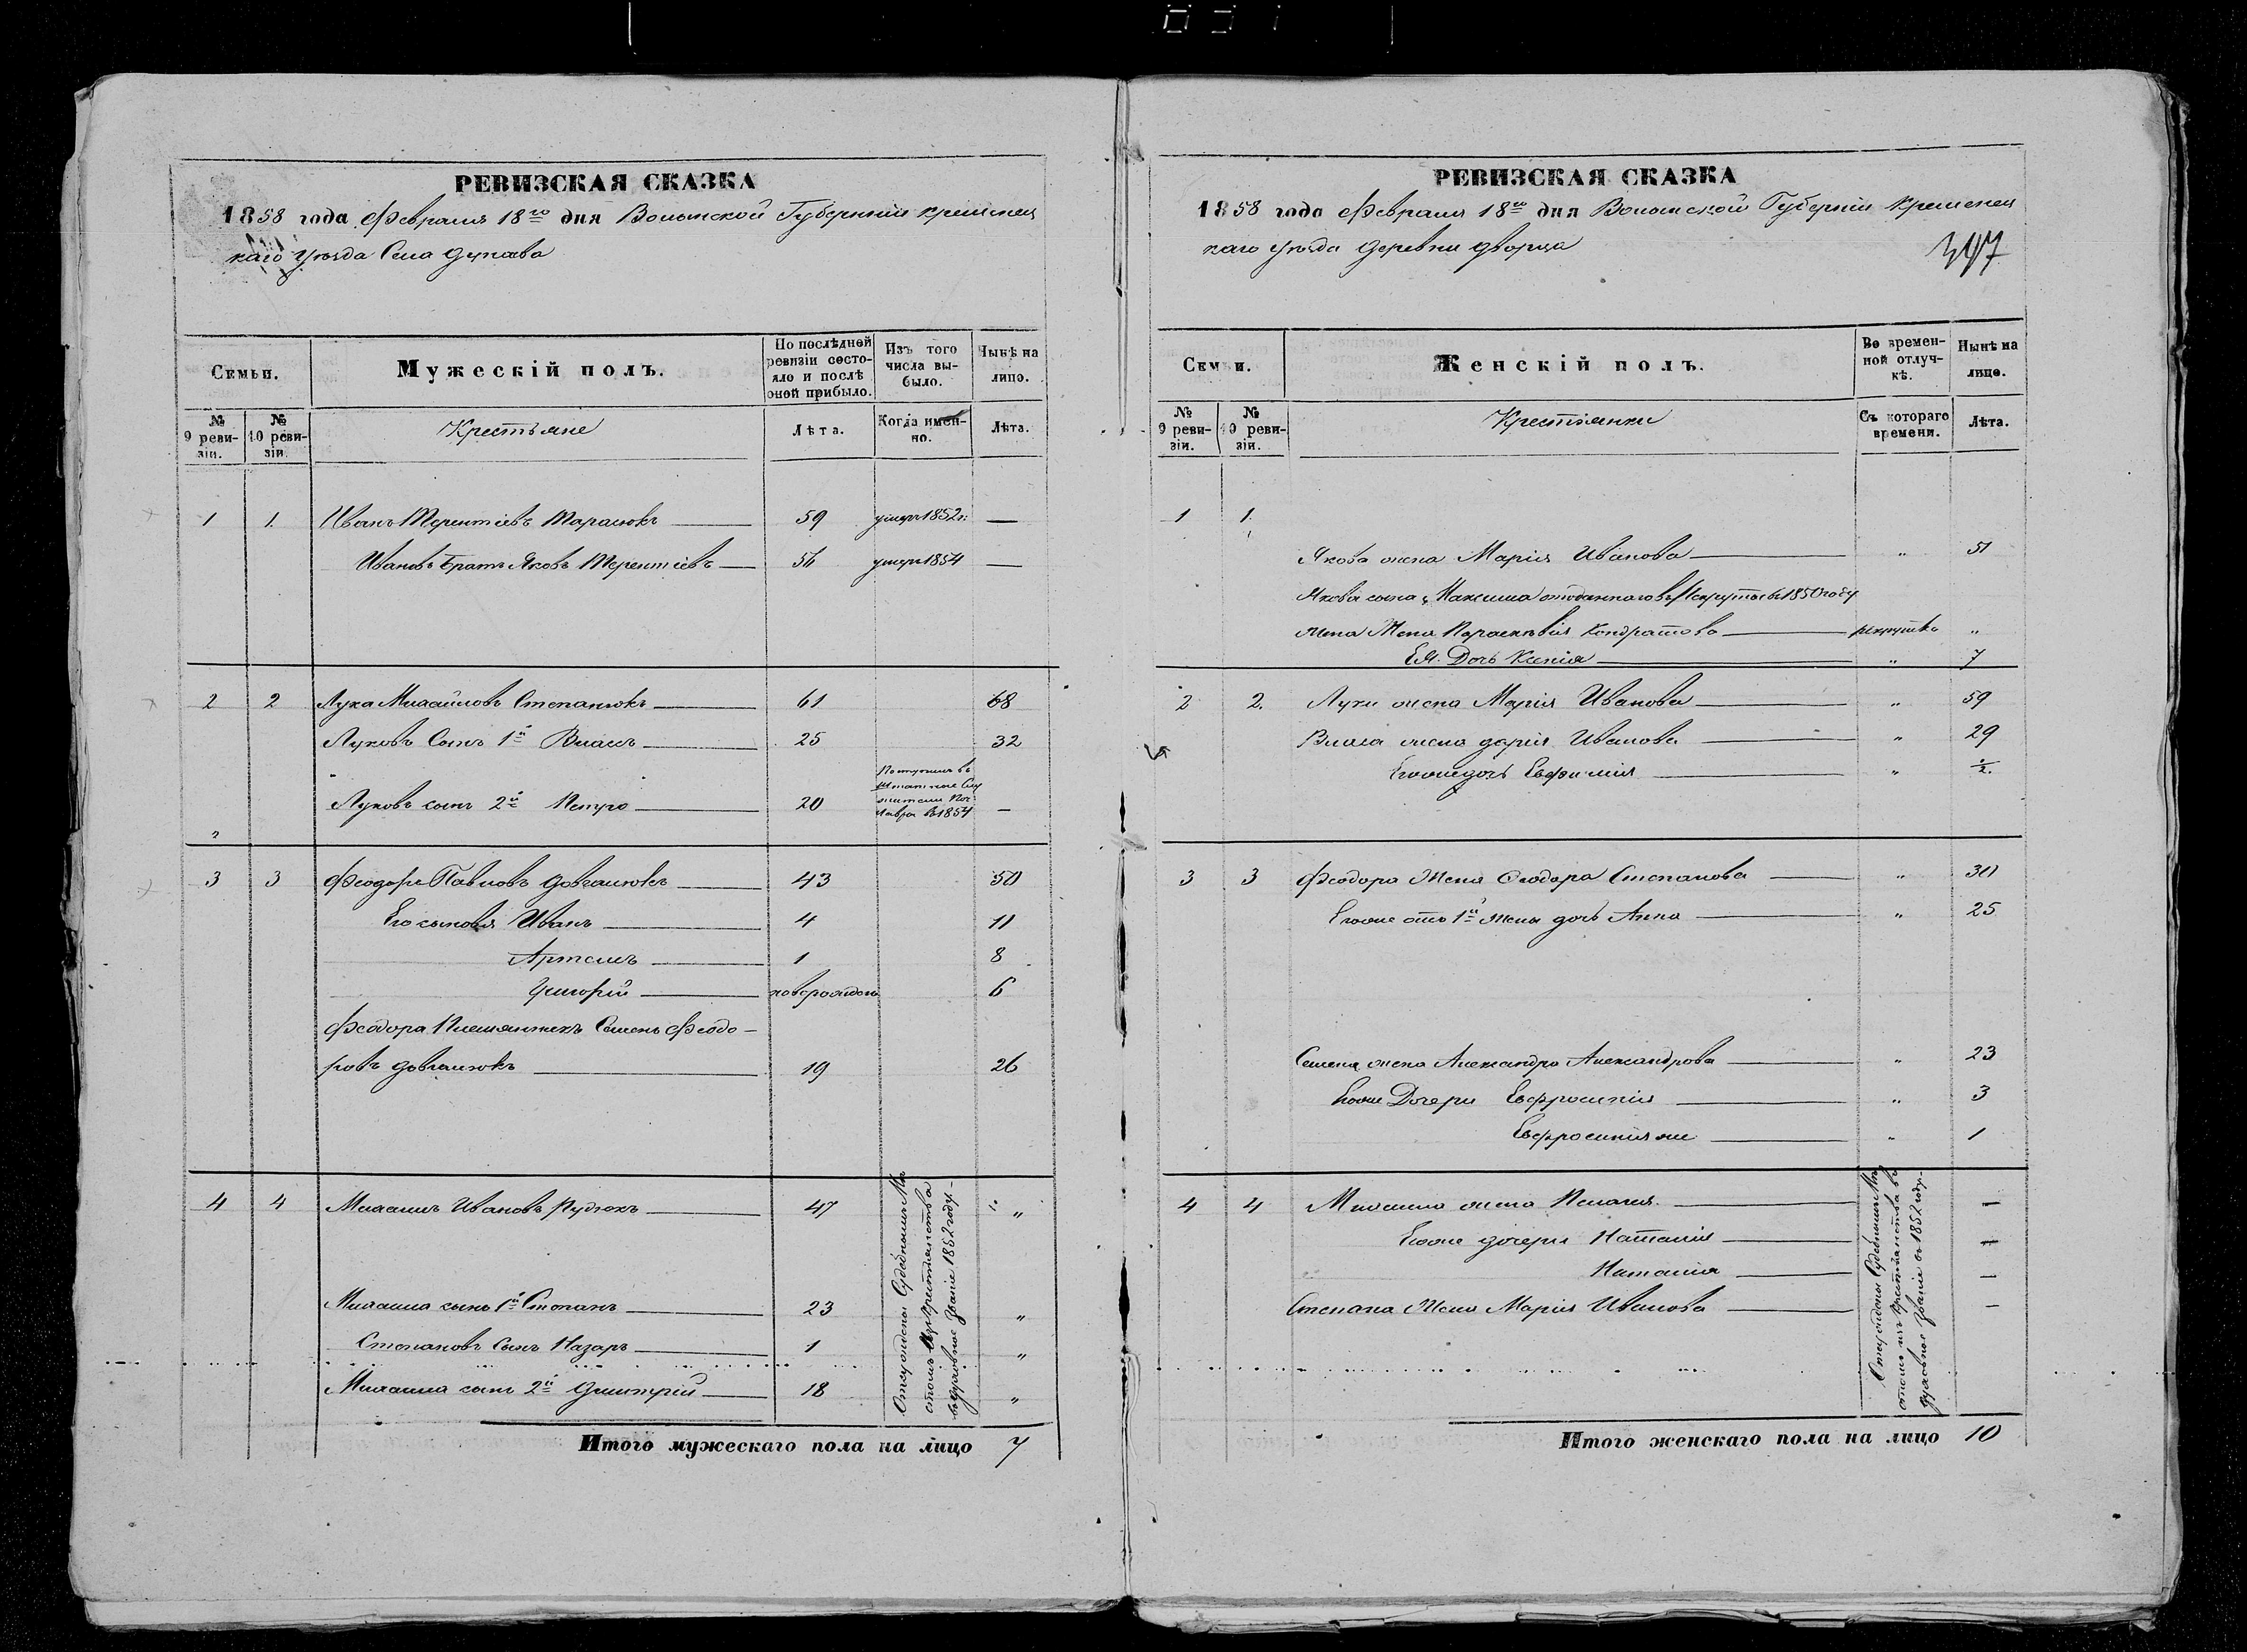 РЕВИЗСКАЯ СКАЗКА
1858 года Февраля 18го дня Волынской Губерніи Кременец
каго уезда Села
Семьи.
Мужескій полъ.
По послѣдней ревизіи состояло и послѣ оной прибыло.
Изъ того числа выбыло.
Нынѣ на лицо.
№ 9 ревизіи.
№ 10 ревизіи.
Крестьяне
Лѣта.
Когда именно.
Лѣта.
1 1. Иванъ Терентіевъ Тарасюкъ 59 умеръ 1852 г. —
Ивановъ Братъ Яковъ Терентіевъ 56 умеръ 1854 —
2 2 Лука Михайловъ Степанюкъ 61 68
Луковъ Сынъ 1й Власъ 25 32
Луковъ сынъ 2й Петро 20 Поступилъ въ штатные Служители Поч: Лавры въ 1854 —
3 3 Феодоръ Павловъ Довгалюкъ 43 50
Его сыновья Иванъ 4 11
Артемъ 1 8
Григорій новорожден 6
Феодора Племянникъ Семенъ Феодо-
ровъ Довгалюкъ 19 26
4 4 Михаилъ Ивановъ Рудюкъ 47 "
Михаила сынъ 1й Степанъ 23 "
Степановъ Сынъ Назаръ 1 "
Михаила сынъ 2й Дмитрій 18 "
въ 1852 году.-
Итого мужескаго пола на лицо 7
РЕВИЗСКАЯ СКАЗКА
1858 года Февраля 18го дня Волынской Губерніи Кременец
каго уезда деревни Дворца
397
Семьи.
Женскій полъ.
Во временной отлучкѣ.
Нынѣ на лицо.
№ 9 ревизіи.
№ 10 ревизіи.
Крестьянки
Съ котораго времени.
Лѣта.
1 1.
Якова жена Марія Иванова " 51
Якова сына Максима отданнаго въ Рекруты въ 1850 году
Жена Параскевія Кондратова рекрутка "
Ея Дочь Ксенія " 7
2 2. Луки жена Марія Иванова " 59
Власа жена Дарія Иванова " 29
Егоже дочь Евфимія " ½.
3 3 Феодора Жена Феодора Степанова " 30
Егоже отъ 1й жены дочь Анна " 25
Семена жена Александра Александрова " 23
Егоже Дочери Евфросинія " 3
Евфросинія же " 1
4 4 Михаила жена Пелагія —
Егоже дочери Наталія —
Наталія —
Степана Жена Марія Иванова —
въ 1852 году.-
Итого женскаго пола на лицо 10